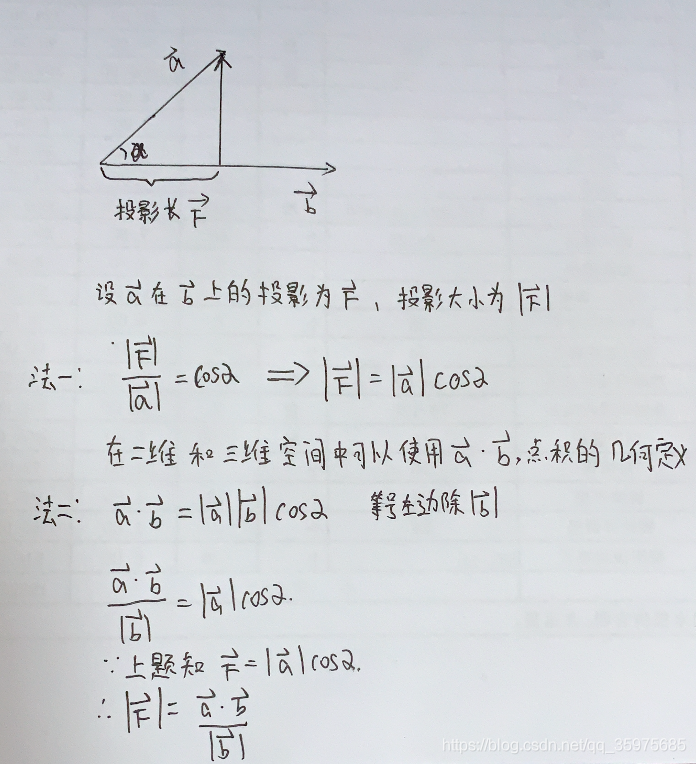 a⃗
α
b⃗
投影长 F⃗
设 a⃗ 在 b⃗ 上的投影为 F⃗、投影大小为 |F⃗|
法一: |F⃗| / |a⃗| = cosα ⟹ |F⃗| = |a⃗| cosα
在二维和三维空间中可以使用 a⃗ · b⃗, 点积的几何定义
法二: a⃗ · b⃗ = |a⃗||b⃗| cosα 等号左边除 |b⃗|
a⃗ · b⃗ / |b⃗| = |a⃗| cosα.
∵ 上题知 F⃗ = |a⃗| cosα.
∴ |F⃗| = a⃗ · b⃗ / |b⃗|
https://blog.csdn.net/qq_35975685